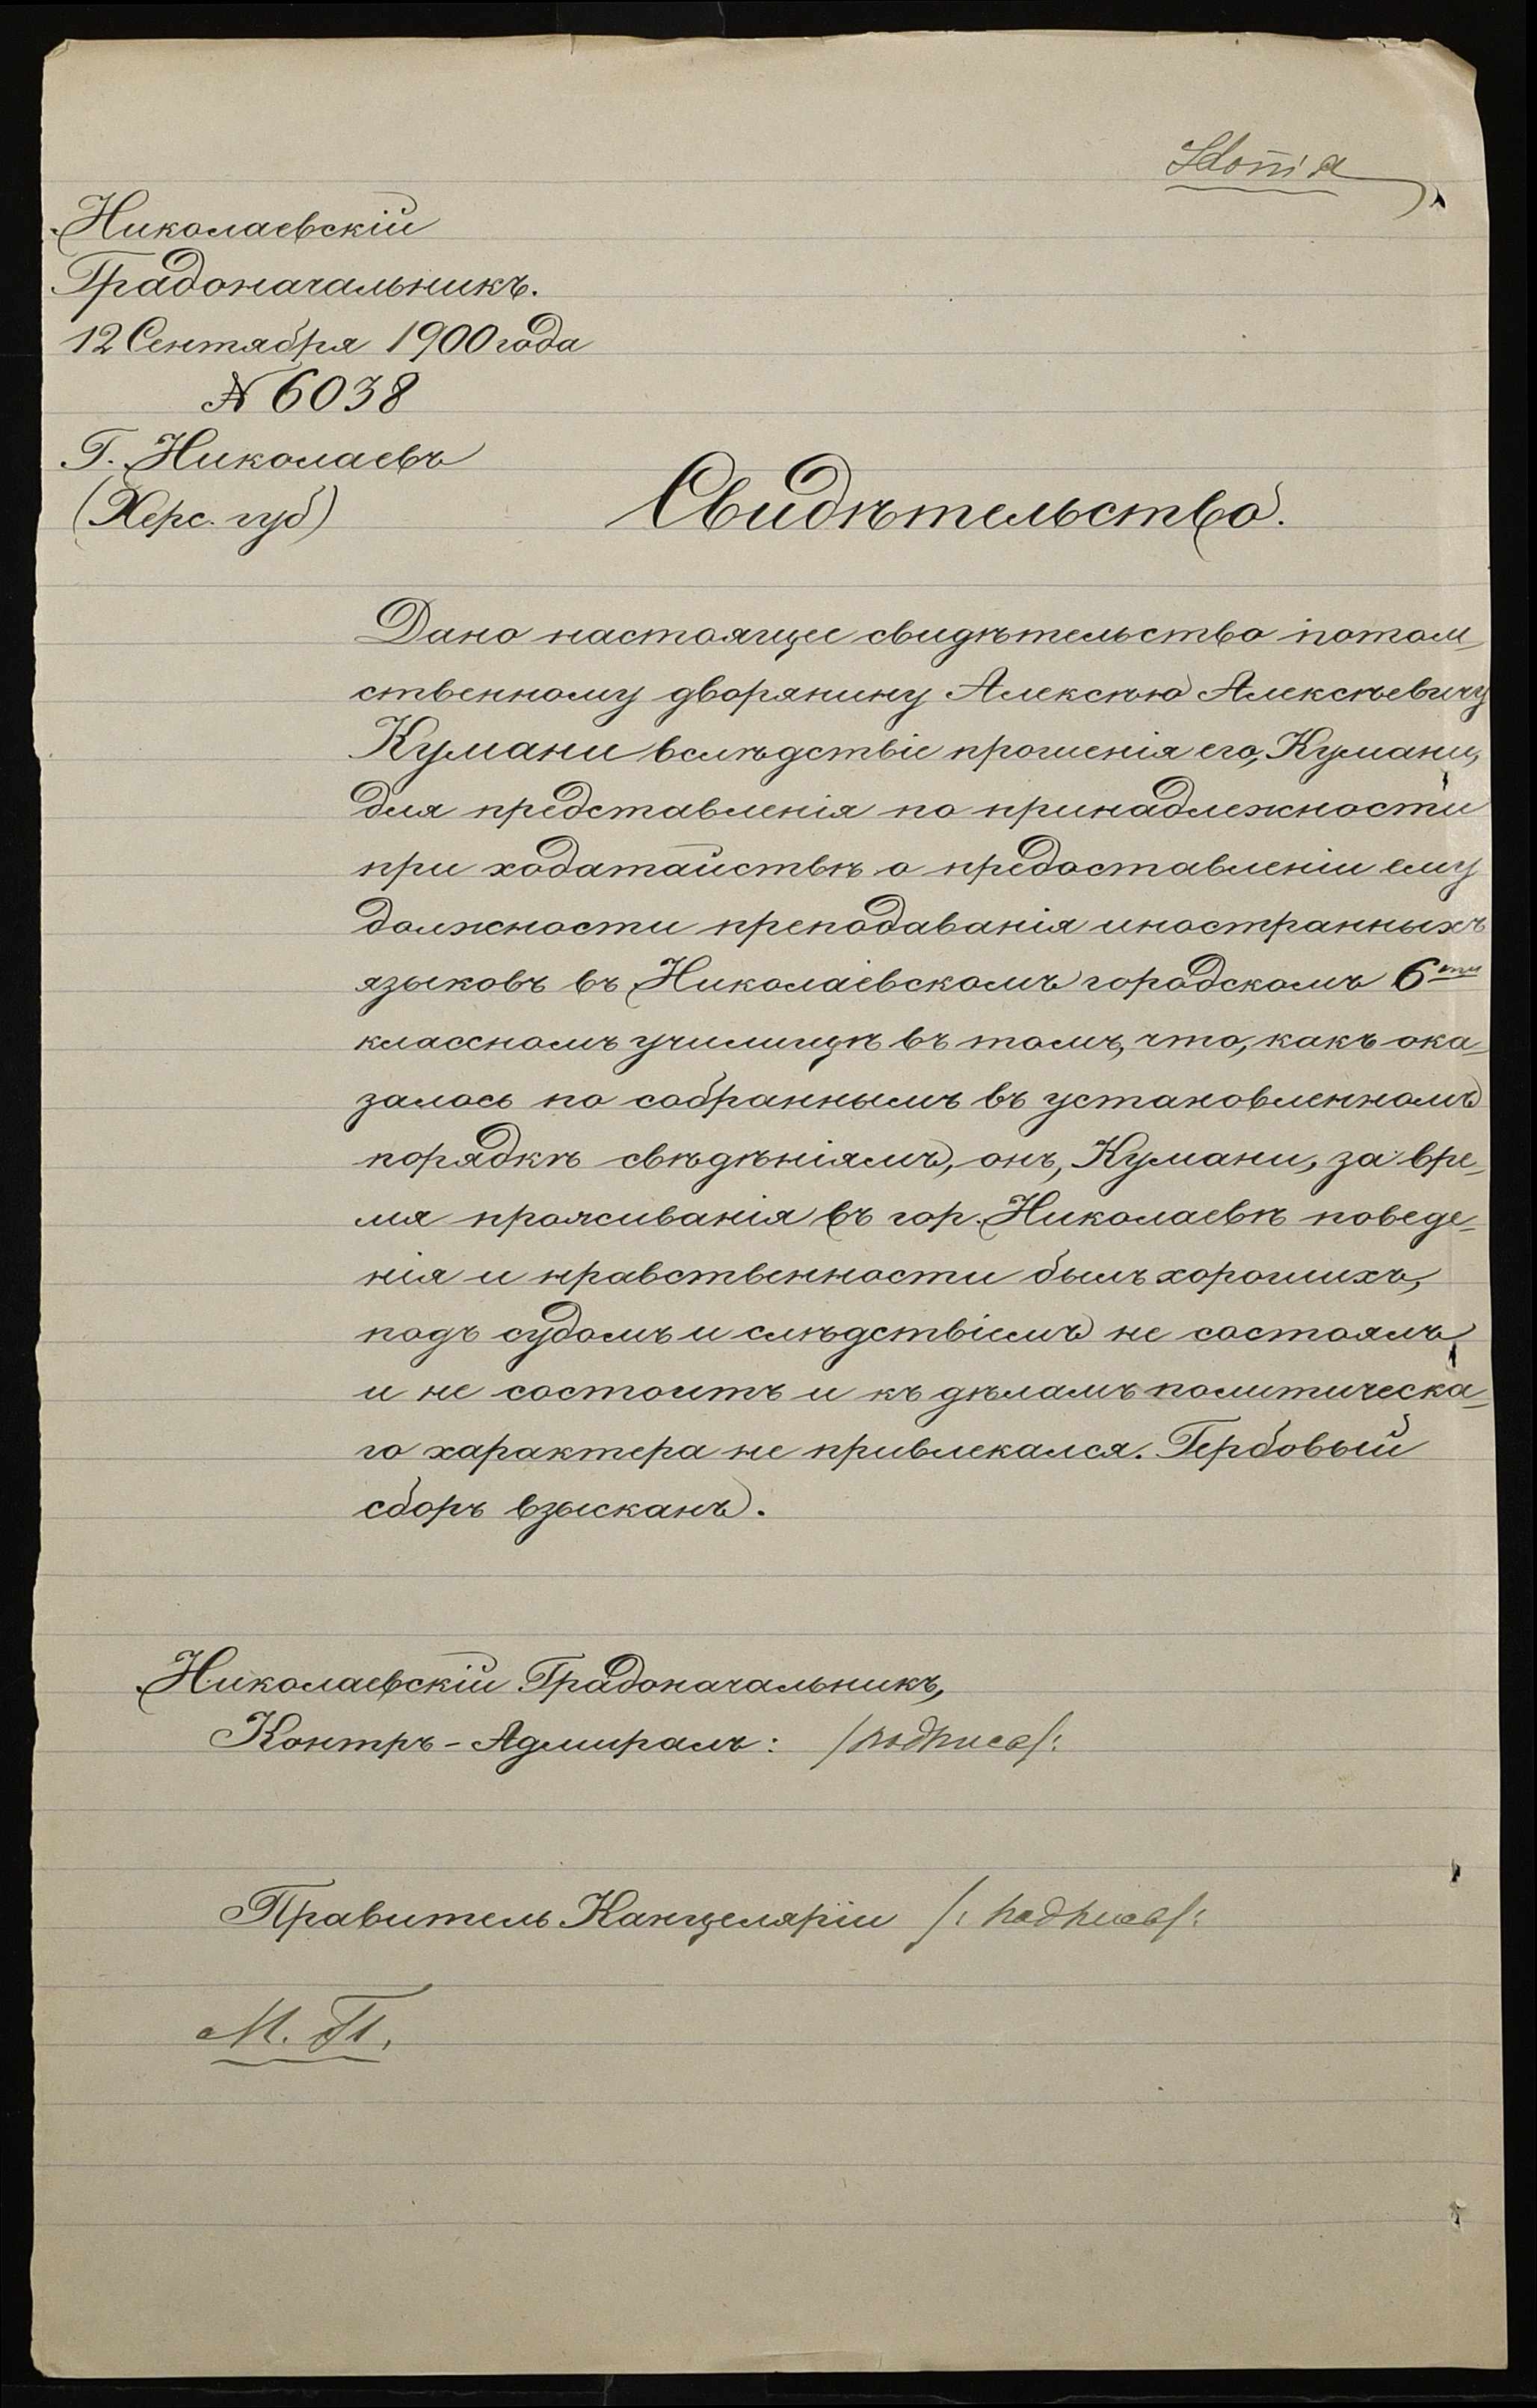 Копія
Николаевскій
Градоначальникъ.
12 Сентября 1900 года
№ 6038
Г. Николаевъ
(Херс. губ)
Свидѣтельство.
Дано настоящее свидѣтельство потом-
ственному дворянину Алексѣю Алексѣевичу
Кумани вслѣдствіе прошенія его, Кумани,
для представленія по принадлежности
при ходатайствѣ о предоставленіи ему
должности преподаванія иностранныхъ
языковъ въ Николаевскомъ городскомъ 6ти
классномъ училищѣ въ томъ, что, какъ ока-
залось по собраннымъ въ установленномъ
порядкѣ свѣдѣніямъ, онъ, Кумани, за вре-
мя проживанія въ гор. Николаевѣ поведе-
нія и нравственности былъ хорошихъ,
подъ судомъ и слѣдствіемъ не состоялъ
и не состоитъ и къ дѣламъ политическа-
го характера не привлекался. Гербовый
сборъ взысканъ.
Николаевскій Градоначальникъ,
Контръ-Адмиралъ: /подпись/:
Правитель Канцеляріи /: подпись/:
М. П.